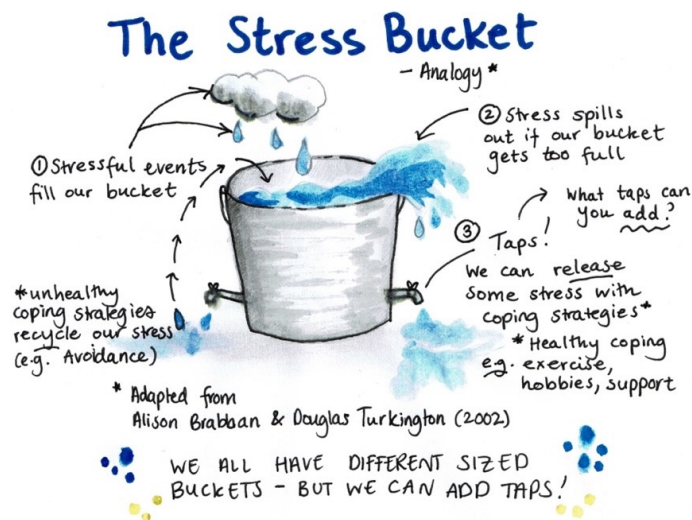 The Stress Bucket
- Analogy *
① Stressful events
fill our bucket
② Stress spills
out if our bucket
gets too full
③ Taps!
What taps can
you add?
We can release
some stress with
coping strategies*
* Healthy coping
e.g. exercise,
hobbies, support
*unhealthy
coping strategies
recycle our stress
(e.g. Avoidance)
* Adapted from
Alison Brabban & Douglas Turkington (2002)
WE ALL HAVE DIFFERENT SIZED
BUCKETS - BUT WE CAN ADD TAPS!